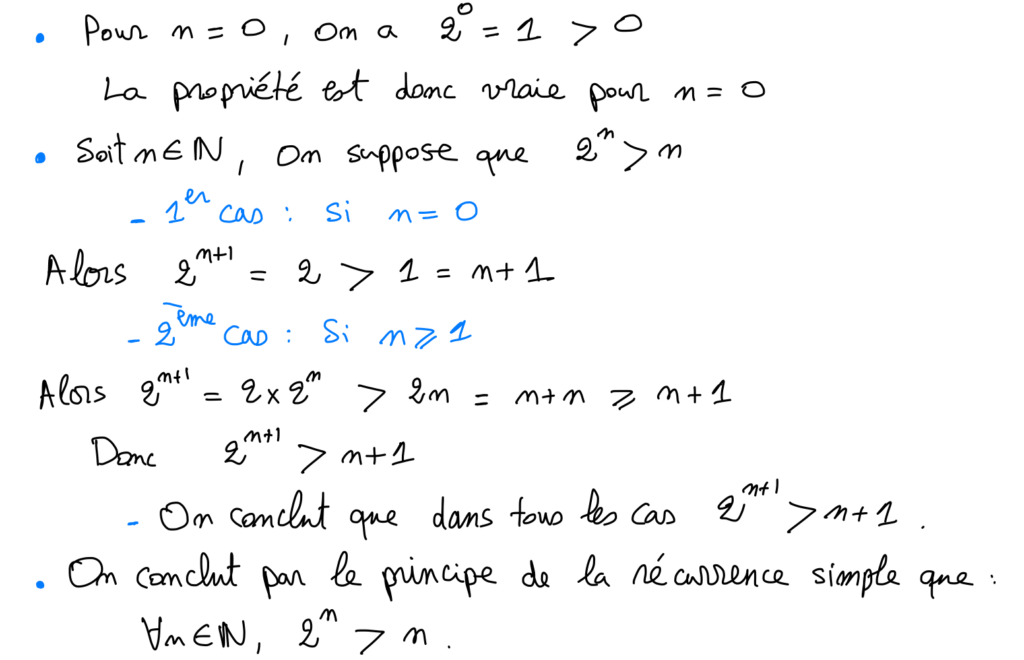 • Pour n = 0, On a 2⁰ = 1 > 0
La propriété est donc vraie pour n = 0
• Soit n ∈ ℕ, On suppose que 2ⁿ > n
- 1er cas : Si n = 0
Alors 2ⁿ⁺¹ = 2 > 1 = n + 1
- 2ème cas : Si n ⩾ 1
Alors 2ⁿ⁺¹ = 2 × 2ⁿ > 2n = n + n ⩾ n + 1
Donc 2ⁿ⁺¹ > n + 1
- On conclut que dans tous les cas 2ⁿ⁺¹ > n + 1 .
• On conclut par le principe de la récurrence simple que :
∀n ∈ ℕ, 2ⁿ > n .